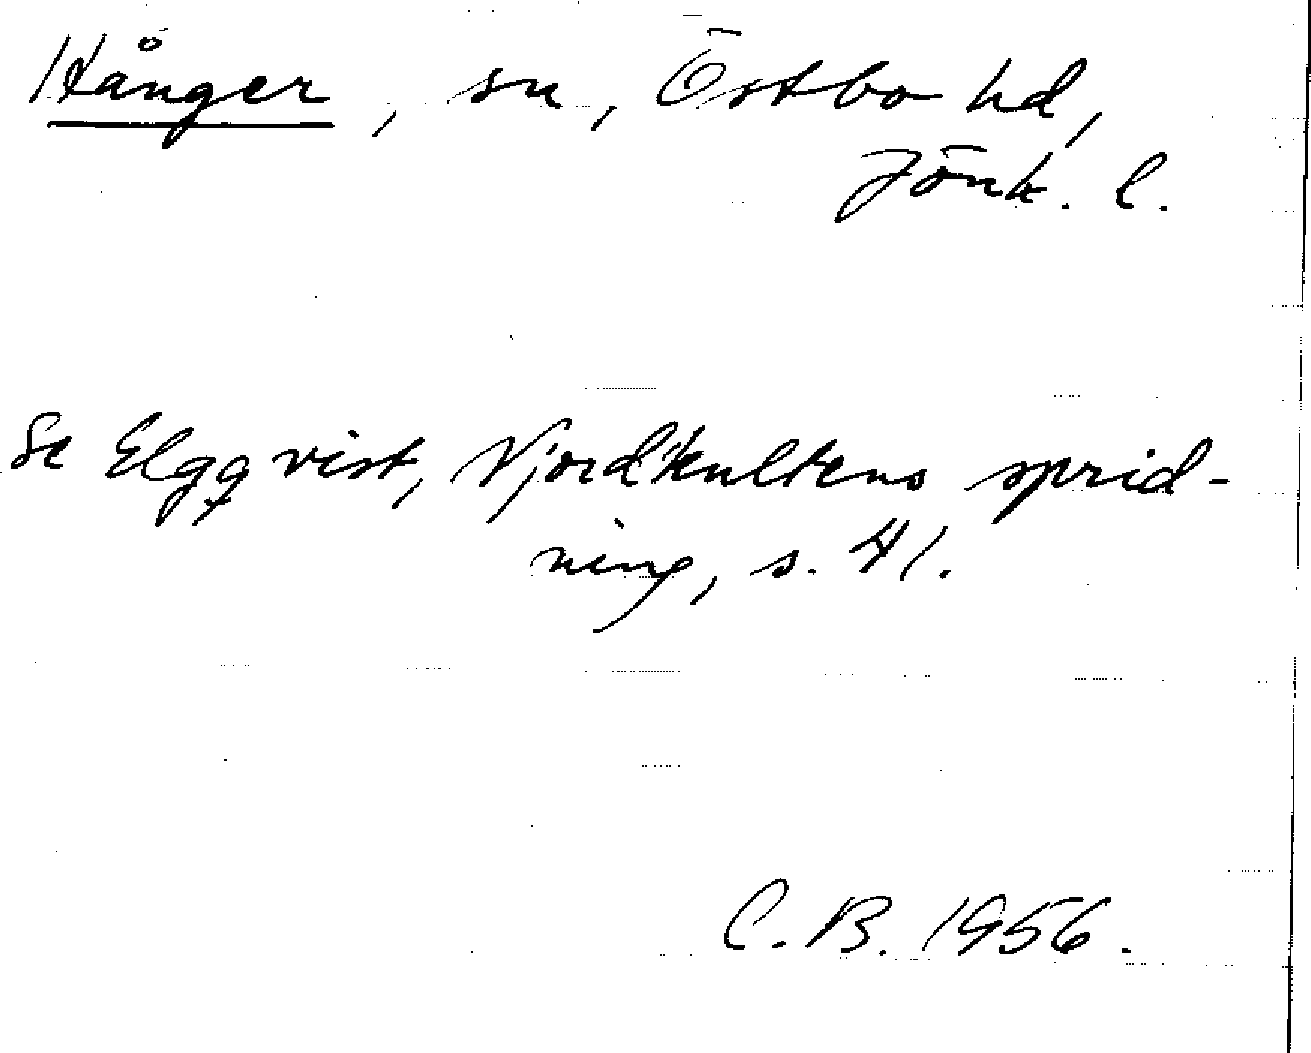 Hånger, sn, Östbo hd,
Jönk. l.
Se Elgqvist, Njordkultens sprid-
ning, s. 41.
C. B. 1956.